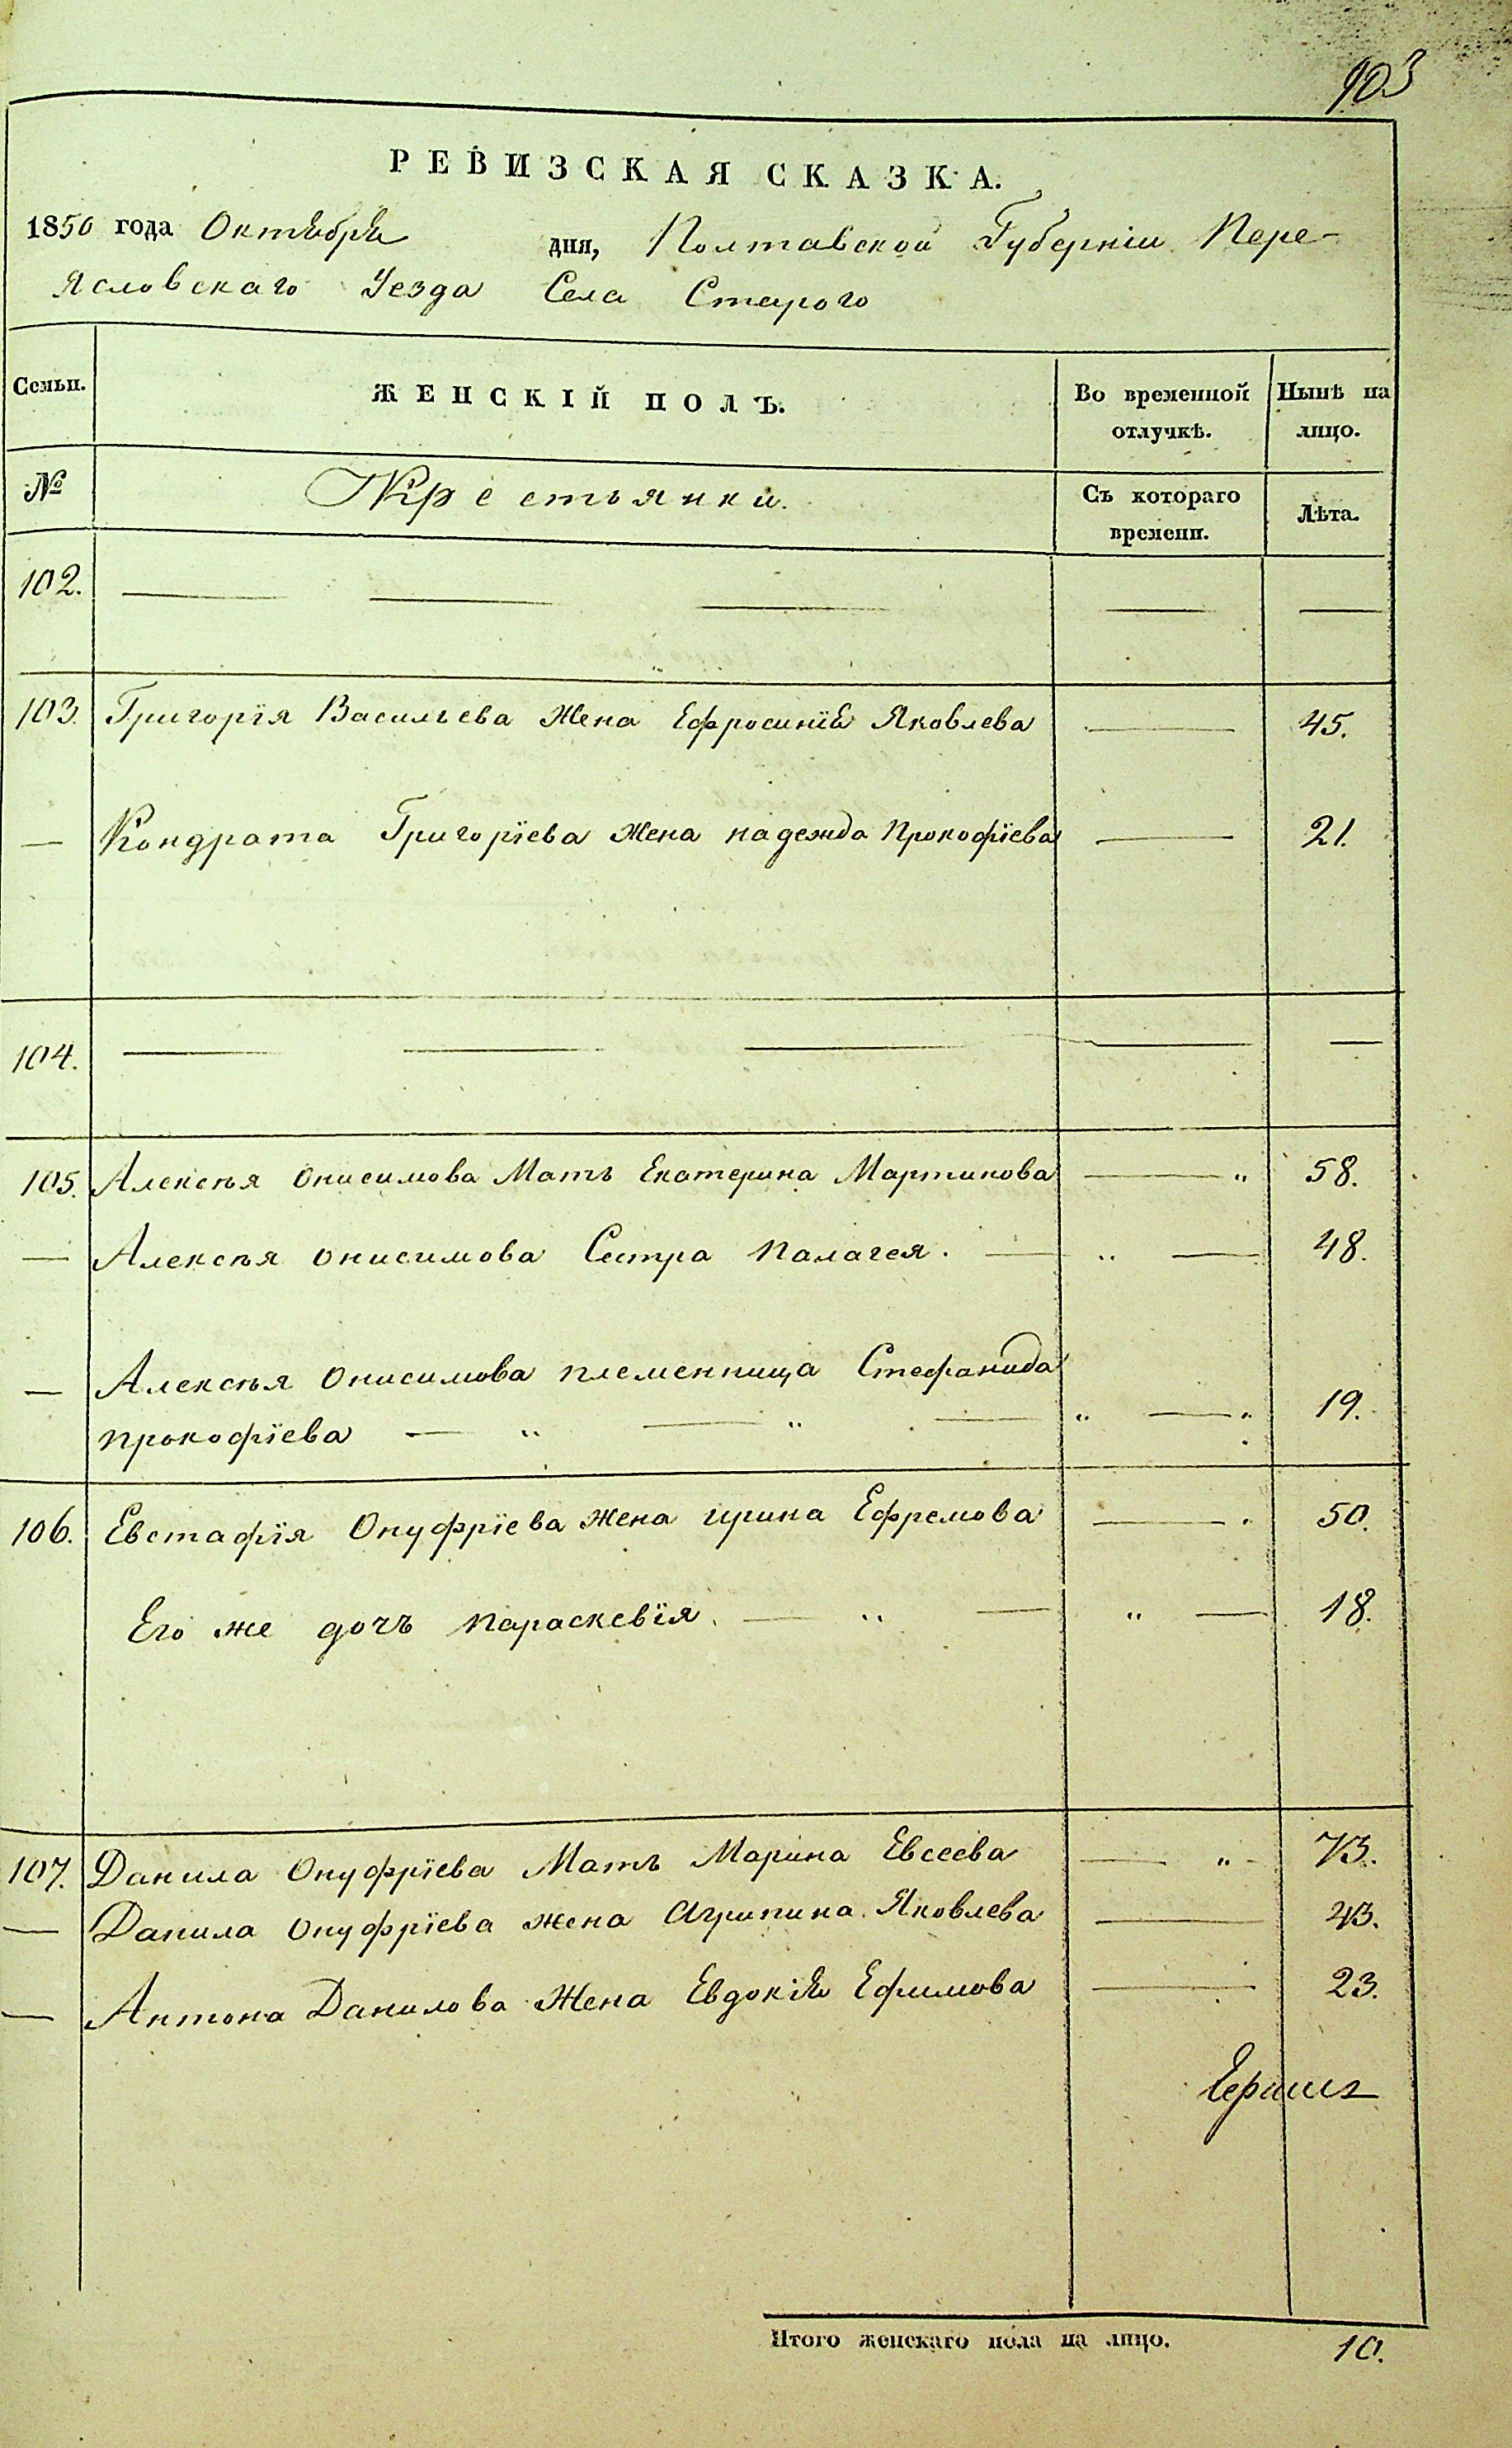 903
РЕВИЗСКАЯ СКАЗКА.
1850 года Октября дня, Полтавской Губерніи Пере-
Ясловскаго Уезда Села Старого
Семьи. ЖЕНСКІЙ ПОЛЪ. Во временной отлучкѣ. Нынѣ на лицо.
№ Крестьянки. Съ котораго времени. Лѣта.
102. — — — — —
103. Григорїя Васильева Жена Ефросинїя Яковлева — 45.
— Кондрата Григорїева Жена надежда Прокофїева — 21.
104. — — — — —
105. Алексѣя Онисимова Мать Екатерина Мартинова — " 58.
— Алексѣя Онисимова Сестра Палагея. — " — 48.
— Алексѣя Онисимова племенница Стефанида
Прокофїева — " — " — " — " 19.
106. Евстафїя Онуфрїева жена ирина Ефремова — 50.
Его же дочъ Параскевїя. — " — " — 18.
107. Данила Онуфрїева Мать Марина Евсеева — " - 73.
— Данила Онуфрїева жена Агрипина Яковлева — 43.
— Антона Данилова Жена Евдокія Ефимова — 23.
Итого женскаго пола на лицо. 10.